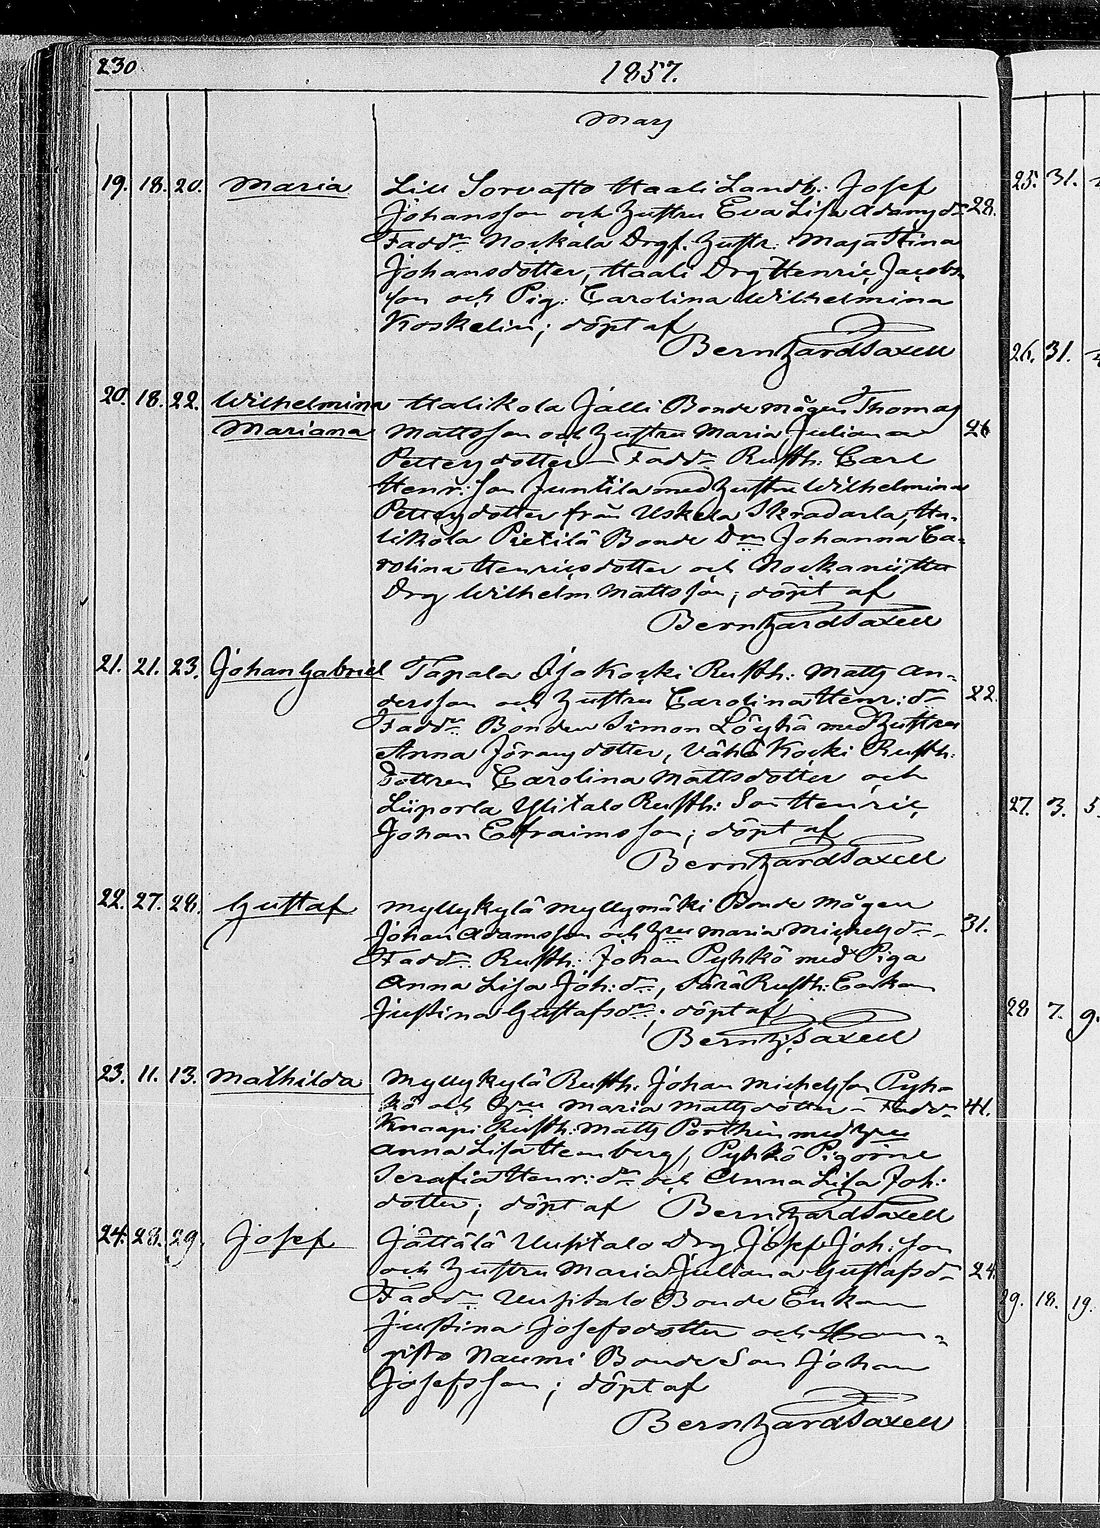 230
1857.
Maj
19. 18. 20. Maria Lill Sorvasto Haali Landb: Josef
Johansson och hustru Eva Lisa Adamsdr 28.
Faddr Nockala Drgs. hustr: Maja Stina
Johansdotter, Haali Drg Henric Jacobs-
son och Pig: Carolina Wilhelmina
Koskelin; döpt af
Bernhard Saxell
20. 18. 22. Wilhelmina Halikola Jälli Bonde mågen Thomas
Mariana Mattsson och hustru Maria Juliana 26
Pettersdotter – Faddr Rusth: Carl
Henr: Son Juntila med hustru Wilhelmina
Pettersdotter från Uskela Skradarla, Ha-
likola Pietilä Bonde Drn Johanna Ca-
rolina Henricsdotter och
Drg Wilhelm Mattsson; döpt af
Bernhard Saxell
21. 21. 23. Johan Gabriel Tapala Iso Kocki Rusth: Matts An-
dersson och hustru Carolina Henr: dr 22.
Faddr Bonden Simon Löyhä med hustru
Anna Göransdotter, Vähä Kocki Rusth:
Dottren Carolina Mattsdotter och
Liiporla Ylitalo Rusth: Son Henric
Johan Efraimsson; döpt af
Bernhard Saxell
22. 27. 28. Gustaf Myllykylä Myllymäki Bonde Mågen
Johan Adamsson och hru Maria Michelsdr – 31.
Faddr Rusth: Johan Pyhkö med Piga
Anna Lisa Joh: dr, Rusth: Enkan
Justina Gustafsdr; döpt af
Bernh. Saxell
23. 11. 13. Mathilda Myllykylä Rusth: Johan Michelsson Pyh-
kö och hru Maria Mattsdotter – Faddr 41.
Knaapi Rusth: Matts Porthin med hru
Anna Lisa Hemberg, Pyhkö Pigorne
Serafia Henr: dr och Anna Lisa Joh:
dotter; döpt af Bernhard Saxell
24. 28. 29. Josef Jättälä Uusitalo Drg Josef Joh: Son
och hustru Maria Juliana Gustafsdr 24.
Faddr Uusitalo Bonde Enkan
Justina Josefsdotter och Hon-
gisto Naumi Bonde Son Johan
Josefsson; döpt af
Bernhard Saxell
25. 31.
26. 31.
27. 3. 5.
28 7. 9.
29. 18. 19.